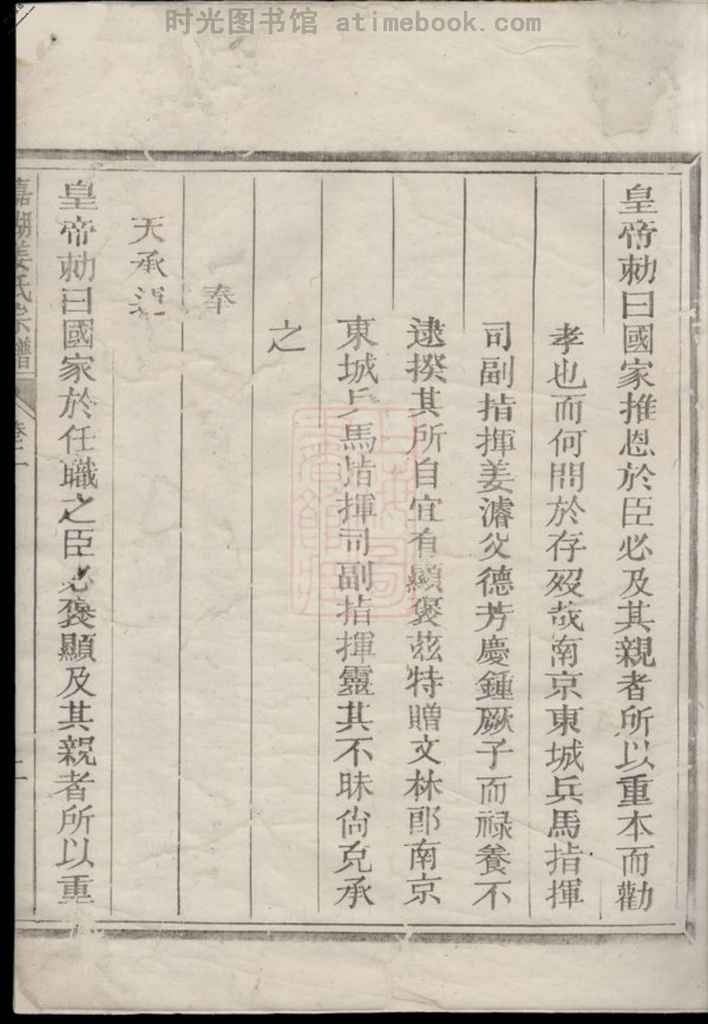 时光图书馆 atimebook.com
皇帝勅曰國家推恩於臣必及其親者所以重本而勸
孝也而何間於存殁哉南京東城兵馬指揮
司副指揮姜濬父德芳慶鍾厥子而禄養不
逮揆其所自宜有顯褒兹特贈文林郎南京
東城兵馬指揮司副指揮靈其不昧尚克承
之
奉
天承運
皇帝勅曰國家於任職之臣必褒顯及其親者所以重
姜氏宗譜